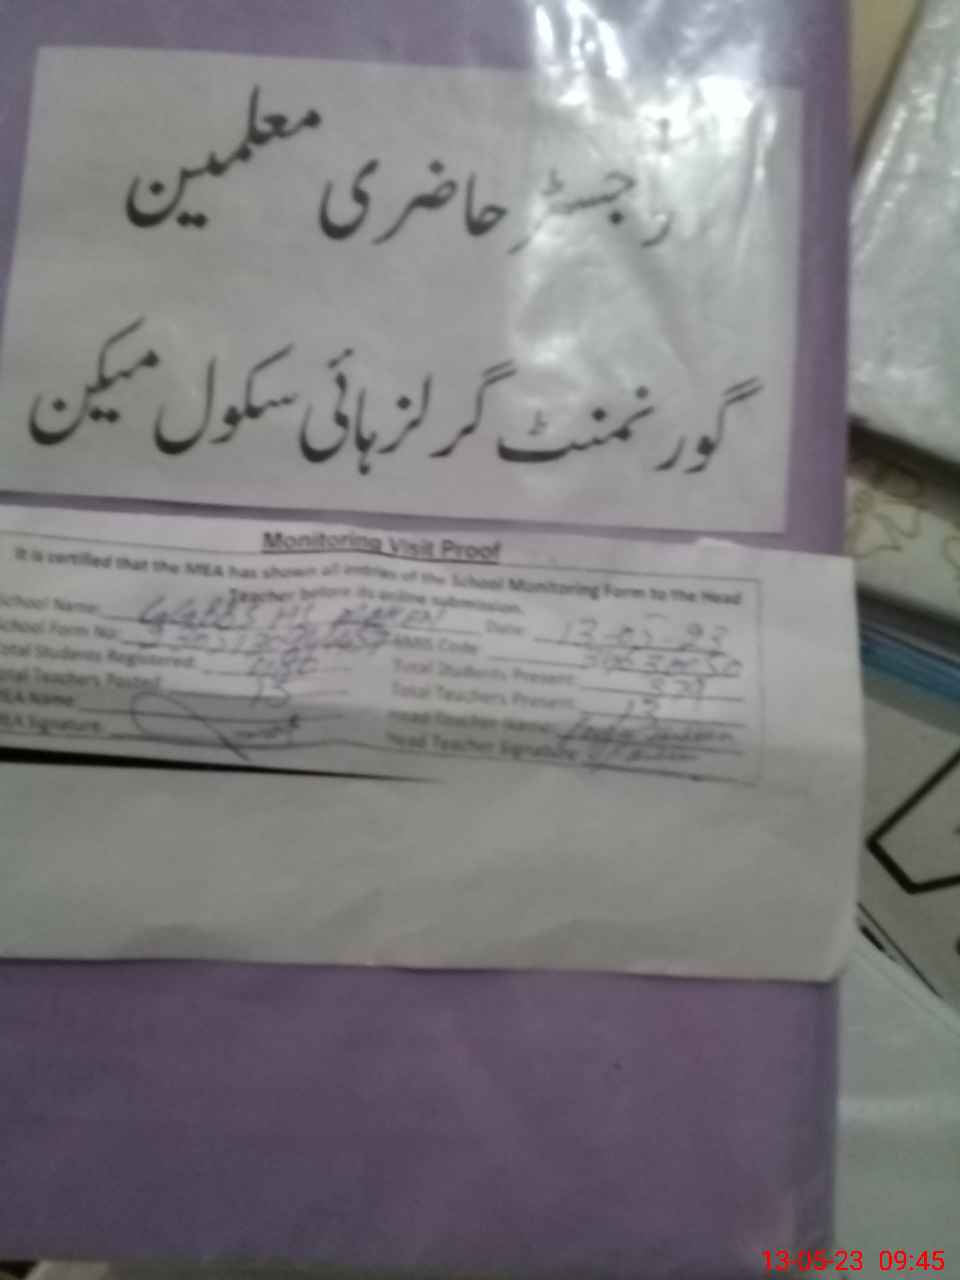 رجسٹر حاضری معلمین
گورنمنٹ گرلز ہائی سکول میکن
Monitoring Visit Proof
It is certified that the MEA has shown all entries of the School Monitoring Form to the Head
Teacher before its online submission.
School Name: Date: 13-05-23
School Form No: EMIS Code:
Total Students Registered: Total Students Present:
Total Teachers Posted: 13 Total Teachers Present: 13
MEA Name: Head Teacher Name:
MEA Signature: Head Teacher Signature:
13-05-23 09:45